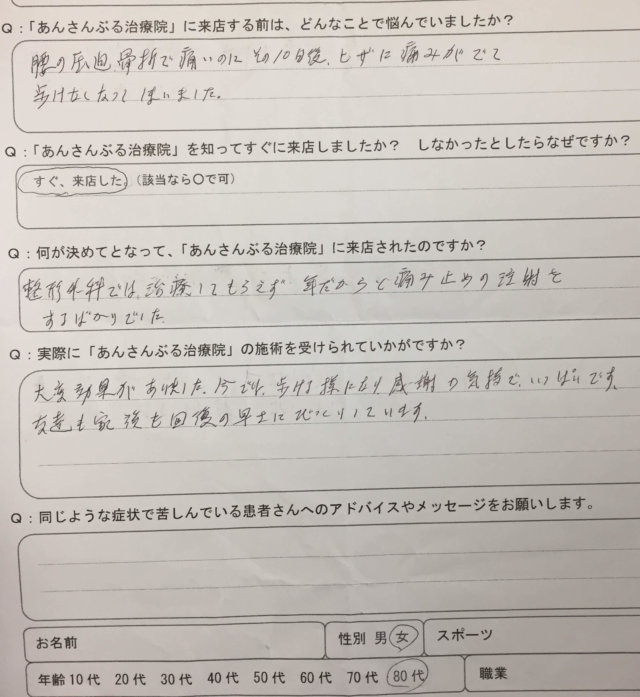 Q：「あんさんぶる治療院」に来店する前は、どんなことで悩んでいましたか？
腰の圧迫骨折で痛いのにその10日後、ヒザに痛みがでて
歩けなくなってしまいました。
Q：「あんさんぶる治療院」を知ってすぐに来店しましたか？　しなかったとしたらなぜですか？
すぐ、来店した。（該当なら〇で可）
Q：何が決めてとなって、「あんさんぶる治療院」に来店されたのですか？
整形外科では、治療してもらえず 年だからと痛み止めの注射を
するばかりでした。
Q：実際に「あんさんぶる治療院」の施術を受けられていかがですか？
大変効果がありました。今では、歩ける様になり、感謝の気持で、いっぱいです。
友達も家族も回復の早さにびっくりしています。
Q：同じような症状で苦しんでいる患者さんへのアドバイスやメッセージをお願いします。
お名前　性別 男 女　スポーツ
年齢 10代　20代　30代　40代　50代　60代　70代　80代　職業